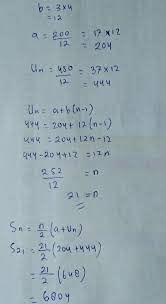 b = 3x4
= 12
a = 200/12 = 17x12
= 204
Un = 450/12 = 37x12
= 444
Un = a+b(n-1)
444 = 204+12(n-1)
444 = 204+12n-12
444-204+12 = 12n
252/12 = n
21 = n
Sn = n/2 (a+Un)
S21 = 21/2 (204+444)
= 21/2 (648)
= 6804